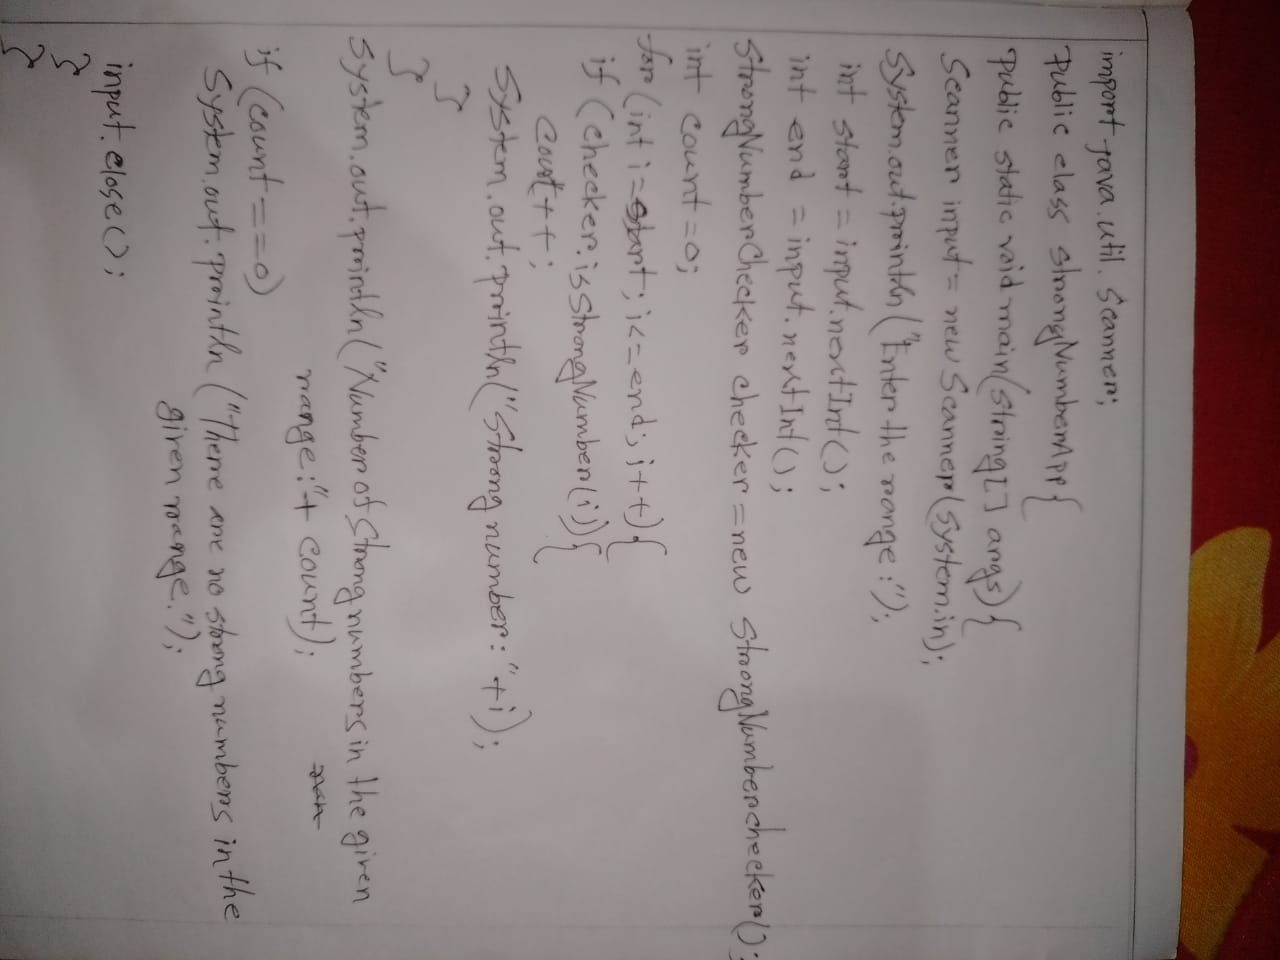 import java.util.Scanner;
public class strongNumberApp{
public static void main(String[] args){
Scanner input = new Scanner(System.in);
System.out.println("Enter the range:");
int start = input.nextInt();
int end = input.nextInt();
StrongNumberChecker checker = new StrongNumberchecker();
int count = 0;
for (int i = start; i <= end; i++){
if (checker.isStrongNumber(i)){
count++;
System.out.println("Strong number: "+i);
}
}
System.out.println("Number of Strong numbers in the given
range:"+ count);
if (count == 0)
System.out.println("There are no strong numbers in the
given range.");
input.close();
}
}